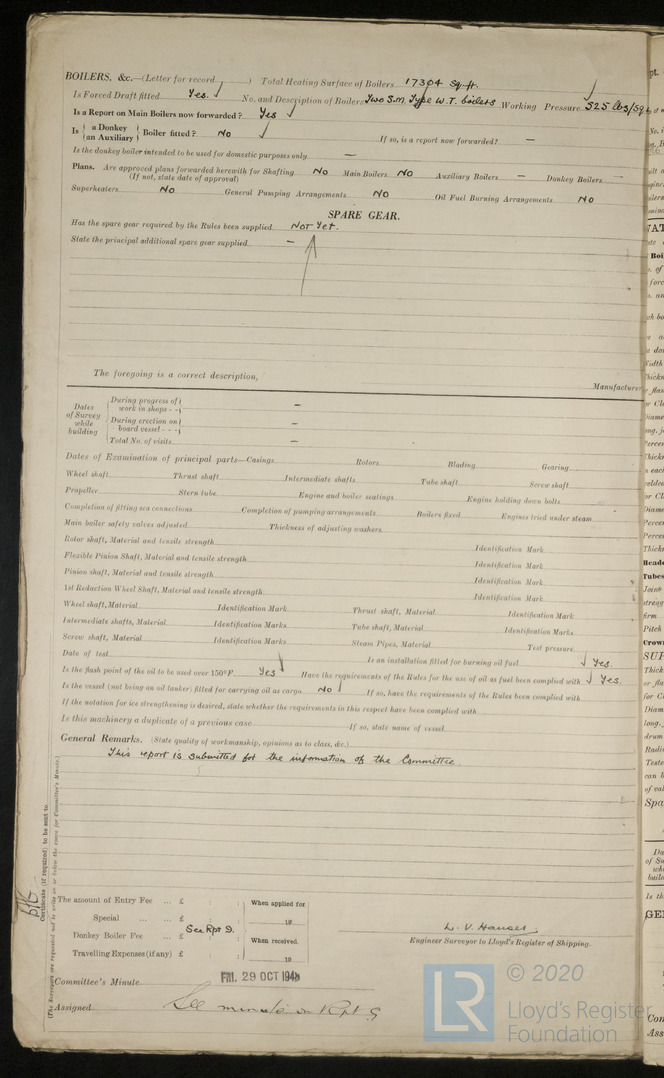 BOILERS, &c.—(Letter for record ) Total Heating Surface of Boilers 17304 sq. ft.
Is Forced Draft fitted Yes. No. and Description of Boilers Two S.M. Type W.T. boilers Working Pressure 525 lbs/sq
Is a Report on Main Boilers now forwarded? Yes
Is { a Donkey / an Auxiliary } Boiler fitted? No If so, is a report now forwarded? —
Is the donkey boiler intended to be used for domestic purposes only —
Plans. Are approved plans forwarded herewith for Shafting No Main Boilers No Auxiliary Boilers — Donkey Boilers —
(If not, state date of approval)
Superheaters No General Pumping Arrangements No Oil Fuel Burning Arrangements No
SPARE GEAR.
Has the spare gear required by the Rules been supplied Not Yet.
State the principal additional spare gear supplied —
The foregoing is a correct description,
Manufacturer
Dates of Survey while building
During progress of work in shops - - —
During erection on board vessel - - - —
Total No. of visits —
Dates of Examination of principal parts—Casings Rotors Blading Gearing
Wheel shaft Thrust shaft Intermediate shafts Tube shaft Screw shaft
Propeller Stern tube Engine and boiler seatings Engine holding down bolts
Completion of fitting sea connections Completion of pumping arrangements Boilers fixed Engines tried under steam
Main boiler safety valves adjusted Thickness of adjusting washers
Rotor shaft, Material and tensile strength Identification Mark
Flexible Pinion Shaft, Material and tensile strength Identification Mark
Pinion shaft, Material and tensile strength Identification Mark
1st Reduction Wheel Shaft, Material and tensile strength Identification Mark
Wheel shaft, Material Identification Mark Thrust shaft, Material Identification Mark
Intermediate shafts, Material Identification Marks Tube shaft, Material Identification Marks
Screw shaft, Material Identification Marks Steam Pipes, Material Test pressure
Date of test Is an installation fitted for burning oil fuel Yes.
Is the flash point of the oil to be used over 150°F. Yes Have the requirements of the Rules for the use of oil as fuel been complied with Yes.
Is the vessel (not being an oil tanker) fitted for carrying oil as cargo No If so, have the requirements of the Rules been complied with
If the notation for ice strengthening is desired, state whether the requirements in this respect have been complied with
Is this machinery a duplicate of a previous case If so, state name of vessel
General Remarks. (State quality of workmanship, opinions as to class, &c.)
This report is submitted for the information of the Committee.
Certificate (if required) to be sent to
(The Surveyors are requested not to write on or below the space for Committee's Minute.)
The amount of Entry Fee ... £ : :
Special ... ... £ : :
Donkey Boiler Fee ... £ See Rpt 9.
Travelling Expenses (if any) £ : :
When applied for
19
When received.
19
Engineer Surveyor to Lloyd's Register of Shipping.
Committee's Minute FRI. 29 OCT 1948
Assigned See minute on Rpt 9
LR
© 2020
Lloyd's Register
Foundation